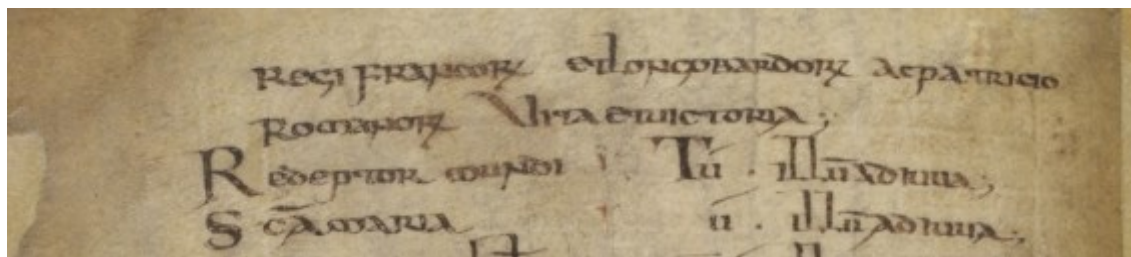 Regi francorꝝ et longobardorꝝ ac patricio
romanorꝝ Vita et uictoria;
Redemptor mundi Tu . illū adiuua;
Scā maria ū . illū adiuua;